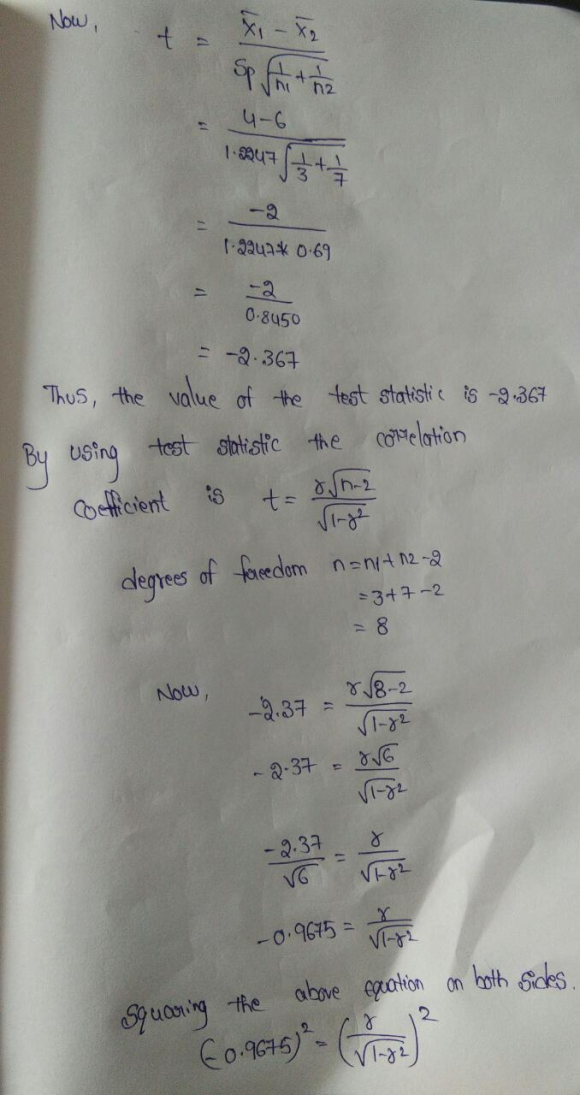 Now,
t = x̄1 - x̄2 / Sp √(1/n1 + 1/n2)
= 4-6 / 1.2247 √(1/3 + 1/7)
= -2 / 1.2247 * 0.69
= -2 / 0.8450
= -2.367
Thus, the value of the test statistic is -2.367
By using test statistic the correlation
coefficient is t = r√(n-2) / √(1-r²)
degrees of freedom n = n1 + n2 - 2
= 3+7-2
= 8
Now,
-2.37 = r√(8-2) / √(1-r²)
-2.37 = r√6 / √(1-r²)
-2.37 / √6 = r / √(1-r²)
-0.9675 = r / √(1-r²)
Squaring the above equation on both sides.
(-0.9675)² = (r / √(1-r²))²